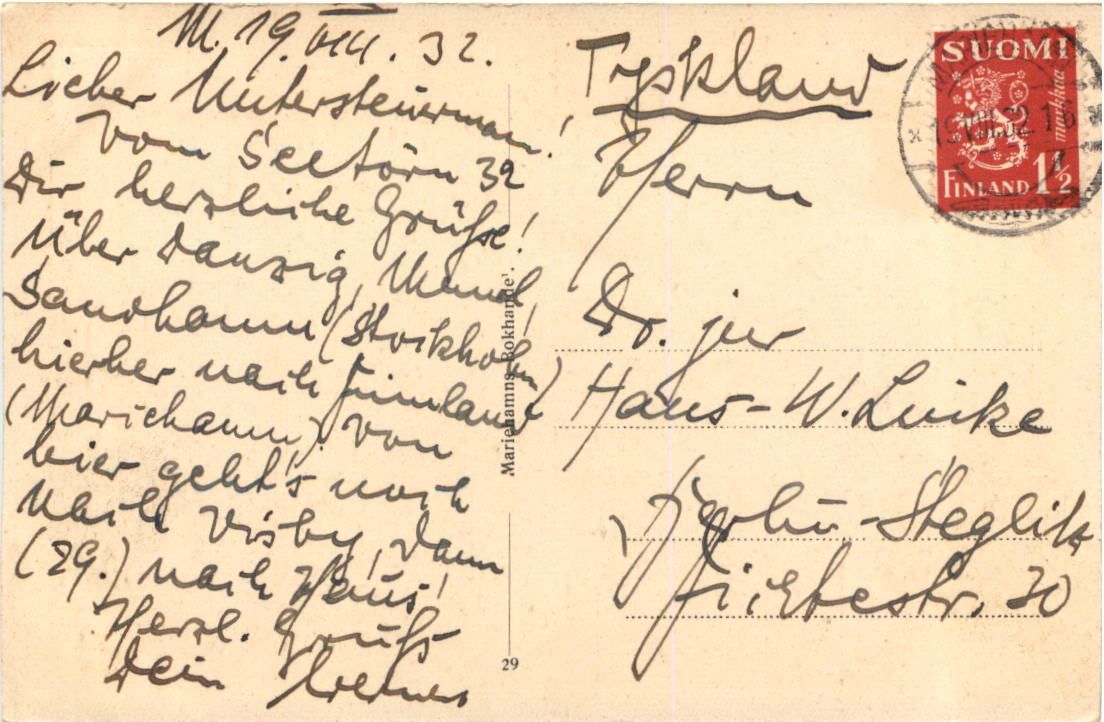 M. 19. VIII. 32.
Lieber Untersteuerman!
vom Seetörn 32
Dir herzliche Grüße!
Über Danzig,
Sandhamn (Stockholm)
hierher nach Finnland
(Mariehamn). Von
hier geht's noch
nach Visby, dann
(29.) nach Haus!
Herzl. Gruß
Dein Werner
Mariehamns Bokhandel.
29
Tyskland
Herrn
Dr. jur
Hans-W. Lucke
Berlin-Steglitz
Fichtestr. 30
SUOMI
markkaa
FINLAND 1½
19.VIII.32.16